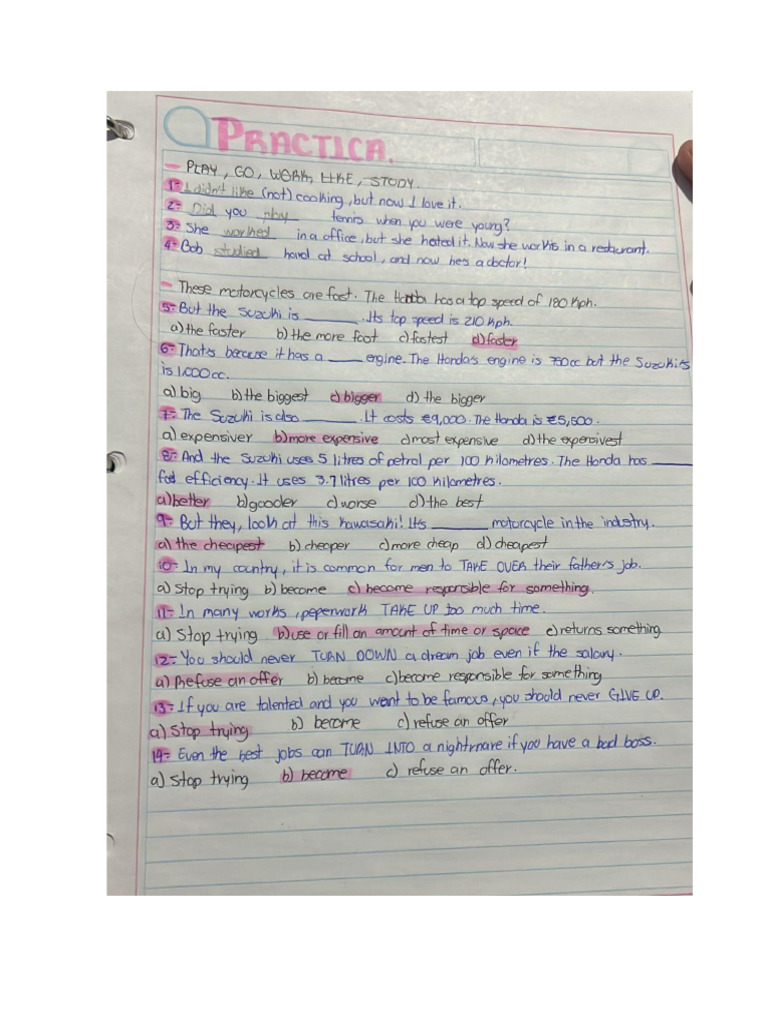 PRACTICA.
- PLAY, GO, WORK, LIKE, STUDY.
1- I didn't like (not) cooking, but now I love it.
2- Did you play tennis when you were young?
3- She worked in a office, but she hated it. Now she works in a restaurant.
4- Bob studied hard at school, and now hes a doctor!
- These motorcycles are fast. The Honda has a top speed of 180 Kph.
5- But the Suzuki is ______. Its top speed is 210 Kph.
a) the faster b) the more fast c) fastest d) faster
6- Thats because it has a ____ engine. The Honda's engine is 750cc but the Suzuki's
is 1.000cc.
a) big b) the biggest c) bigger d) the bigger
7- The Suzuki is also ______. It costs €9,000. The Honda is €5,500.
a) expensiver b) more expensive c) most expensive d) the expensivest
8- And the Suzuki uses 5 litres of petrol per 100 kilometres. The Honda has ____
fuel efficiency. It uses 3.7 litres per 100 kilometres.
a) better b) gooder c) worse d) the best
9- But they, look at this Kawasaki! Its ______ motorcycle in the industry.
a) the cheapest b) cheaper c) more cheap d) cheapest
10- In my country, it is common for men to TAKE OVER their father's job.
a) Stop trying b) become c) become responsible for something.
11- In many works, peperwork TAKE UP too much time.
a) Stop trying b) use or fill an amount of time or space c) returns something
12- You should never TURN DOWN a dream job even if the salary.
a) Refuse an offer b) become c) become responsible for something
13- If you are talented and you want to be famous, you should never GIVE UP.
a) Stop trying b) become c) refuse an offer
14- Even the best jobs can TURN INTO a nightmare if you have a bad boss.
a) Stop trying b) become c) refuse an offer.